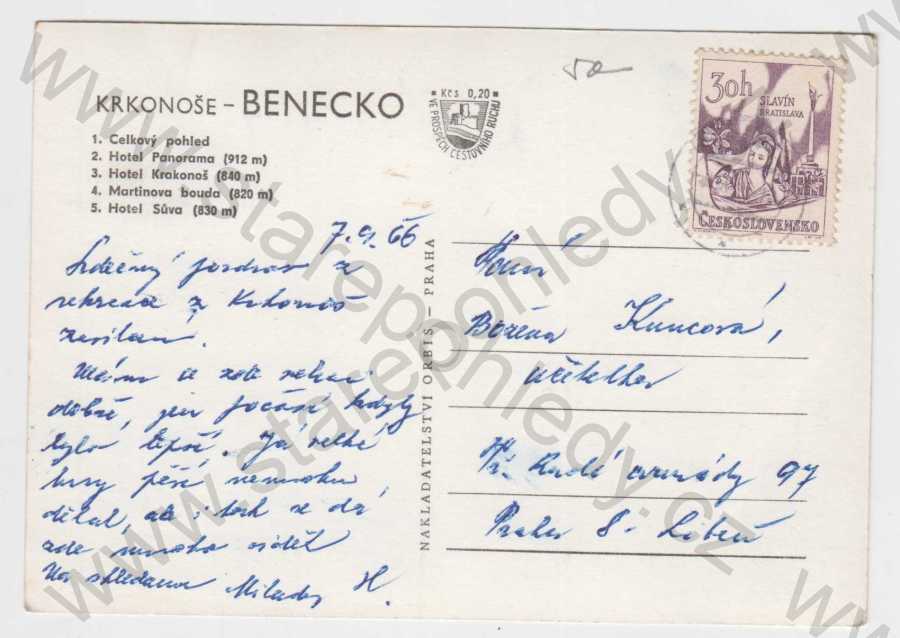 KRKONOŠE – BENECKO
1. Celkový pohled
2. Hotel Panorama (912 m)
3. Hotel Krakonoš (840 m)
4. Martinova bouda (820 m)
5. Hotel Sůva (830 m)
Kčs 0,20
VE PROSPĚCH CESTOVNÍHO RUCHU
30h
SLAVÍN
BRATISLAVA
ČESKOSLOVENSKO
7.9.66
Srdečný pozdrav z
rekreace z Krkonoš
zasílám.
Máme se zde velmi
dobře, jen počasí kdyby
bylo lepší. Já velké
túry pěší nemohu
dělat, ale i tak se dá
zde mnoho vidět
Na shledanou Milada H.
NAKLADATELSTVÍ ORBIS – PRAHA
Paní
Božena Kuncová,
učitelka
Tř. Rudé armády 97
Praha 8 - Libeň
www.starepohledy.cz